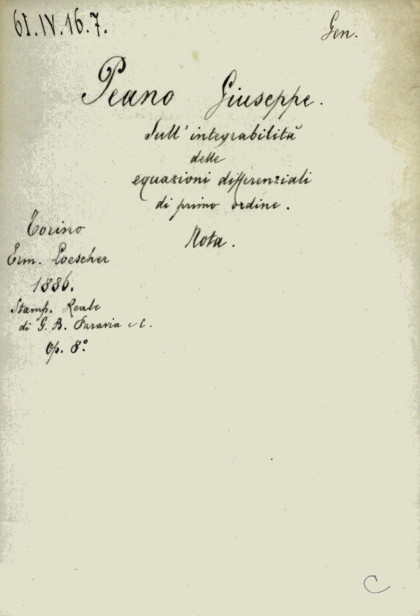 61.IV.16.7.
Gen.
Peano Giuseppe.
Sull'integrabilità
delle
equazioni differenziali
di primo ordine.
Nota.
Torino
Erm. Loescher
1886.
Stamp. Reale
di G. B. Paravia e C.
Op. 8°
C